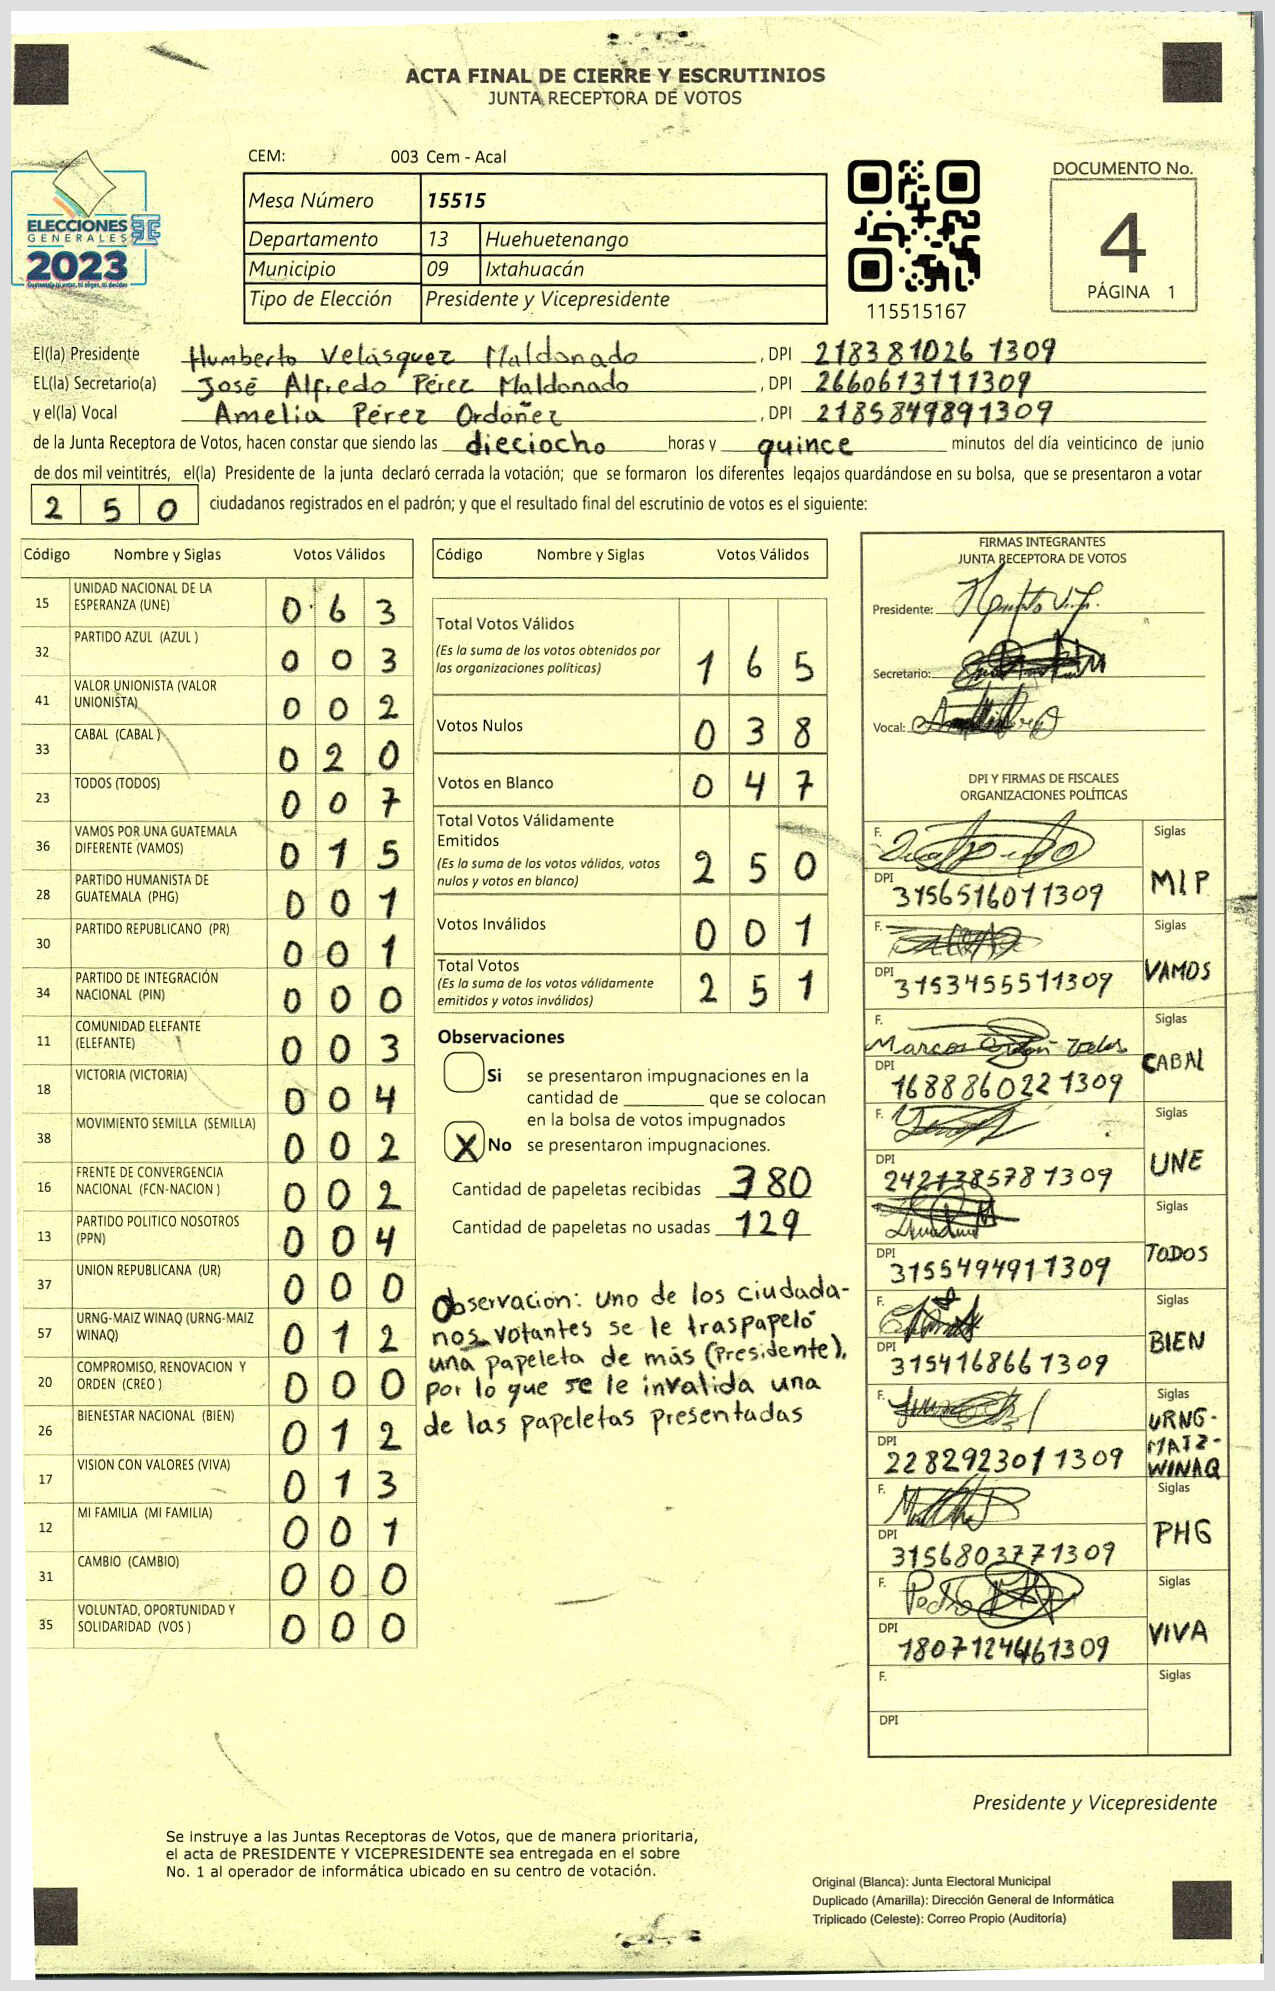 ACTA FINAL DE CIERRE Y ESCRUTINIOS
JUNTA RECEPTORA DE VOTOS
CEM: 003 Cem - Acal
ELECCIONES
GENERALES
2023
Mesa Número 15515
Departamento 13 Huehuetenango
Municipio 09 Ixtahuacán
Tipo de Elección Presidente y Vicepresidente
115515167
DOCUMENTO No.
4
PÁGINA 1
El(la) Presidente Humberto Velásquez Maldonado, DPI 218381026 1309
EL(la) Secretario(a) José Alfredo Pérez Maldonado, DPI 2660613111309
y el(la) Vocal Amelia Pérez Ordóñez, DPI 2185849891309
de la Junta Receptora de Votos, hacen constar que siendo las dieciocho horas y quince minutos del día veinticinco de junio
de dos mil veintitrés, el(la) Presidente de la junta declaró cerrada la votación; que se formaron los diferentes legajos guardándose en su bolsa, que se presentaron a votar
250 ciudadanos registrados en el padrón; y que el resultado final del escrutinio de votos es el siguiente:
Código Nombre y Siglas Votos Válidos
15 UNIDAD NACIONAL DE LA ESPERANZA (UNE) 0 6 3
32 PARTIDO AZUL (AZUL ) 0 0 3
41 VALOR UNIONISTA (VALOR UNIONISTA) 0 0 2
33 CABAL (CABAL ) 0 2 0
23 TODOS (TODOS) 0 0 7
36 VAMOS POR UNA GUATEMALA DIFERENTE (VAMOS) 0 1 5
28 PARTIDO HUMANISTA DE GUATEMALA (PHG) 0 0 1
30 PARTIDO REPUBLICANO (PR) 0 0 1
34 PARTIDO DE INTEGRACIÓN NACIONAL (PIN) 0 0 0
11 COMUNIDAD ELEFANTE (ELEFANTE) 0 0 3
18 VICTORIA (VICTORIA) 0 0 4
38 MOVIMIENTO SEMILLA (SEMILLA) 0 0 2
16 FRENTE DE CONVERGENCIA NACIONAL (FCN-NACION ) 0 0 2
13 PARTIDO POLITICO NOSOTROS (PPN) 0 0 4
37 UNION REPUBLICANA (UR) 0 0 0
57 URNG-MAIZ WINAQ (URNG-MAIZ WINAQ) 0 1 2
20 COMPROMISO, RENOVACION Y ORDEN (CREO ) 0 0 0
26 BIENESTAR NACIONAL (BIEN) 0 1 2
17 VISION CON VALORES (VIVA) 0 1 3
12 MI FAMILIA (MI FAMILIA) 0 0 1
31 CAMBIO (CAMBIO) 0 0 0
35 VOLUNTAD, OPORTUNIDAD Y SOLIDARIDAD (VOS ) 0 0 0
Código Nombre y Siglas Votos Válidos
Total Votos Válidos
(Es la suma de los votos obtenidos por
las organizaciones políticas) 1 6 5
Votos Nulos 0 3 8
Votos en Blanco 0 4 7
Total Votos Válidamente
Emitidos
(Es la suma de los votos válidos, votos
nulos y votos en blanco) 2 5 0
Votos Inválidos 0 0 1
Total Votos
(Es la suma de los votos válidamente
emitidos y votos inválidos) 2 5 1
Observaciones
Si se presentaron impugnaciones en la
cantidad de ________ que se colocan
en la bolsa de votos impugnados
X No se presentaron impugnaciones.
Cantidad de papeletas recibidas 380
Cantidad de papeletas no usadas 129
Observación: uno de los ciudada-
nos votantes se le traspapeló
una papeleta de más (Presidente),
por lo que se le invalida una
de las papeletas presentadas
FIRMAS INTEGRANTES
JUNTA RECEPTORA DE VOTOS
Presidente:
Secretario:
Vocal:
DPI Y FIRMAS DE FISCALES
ORGANIZACIONES POLÍTICAS
F. Siglas
DPI 3156516011309 MLP
F. Siglas
DPI 3153455511309 VAMOS
F. Marcos Siglas
DPI 168886022 1309 CABAL
F. Siglas
DPI 242138578 1309 UNE
F. Siglas
DPI 3155494911309 TODOS
F. Siglas
DPI 3154168661309 BIEN
F. Siglas
DPI 2282923011309 URNG-MAIZ-WINAQ
F. Siglas
DPI 3156803771309 PHG
F. Pedro Siglas
DPI 1807124461309 VIVA
F. Siglas
DPI
Presidente y Vicepresidente
Se instruye a las Juntas Receptoras de Votos, que de manera prioritaria,
el acta de PRESIDENTE Y VICEPRESIDENTE sea entregada en el sobre
No. 1 al operador de informática ubicado en su centro de votación.
Original (Blanca): Junta Electoral Municipal
Duplicado (Amarilla): Dirección General de Informática
Triplicado (Celeste): Correo Propio (Auditoría)